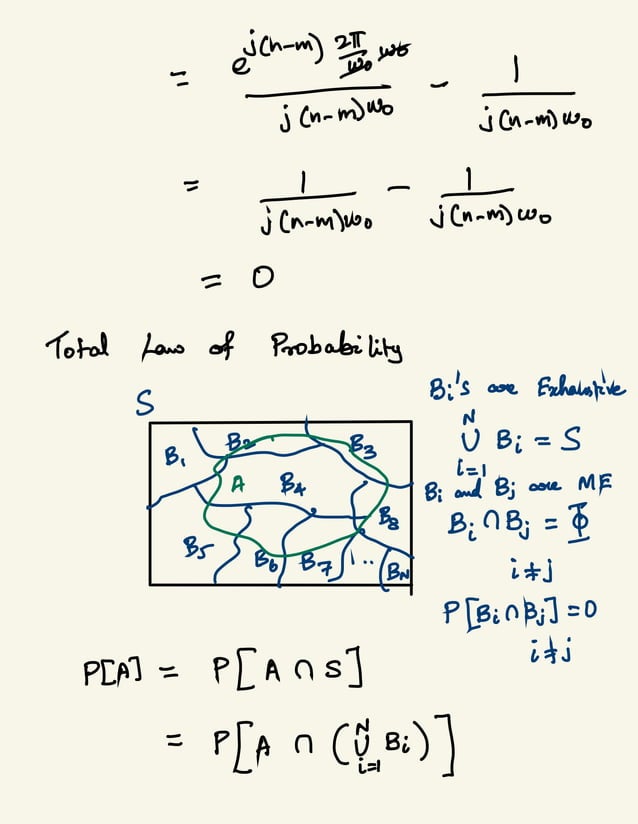 = e^{j(n-m) 2π/ω₀ ω₀} / j(n-m)ω₀ - 1 / j(n-m)ω₀
= 1 / j(n-m)ω₀ - 1 / j(n-m)ω₀
= 0
Total Law of Probability
S
B₁ B₂ B₃
A B₄
B₅ B₆ B₇ ... B₈ B_N
Bᵢ's are Exhaustive
N
∪ Bᵢ = S
i=1
Bᵢ and Bⱼ are ME
Bᵢ ∩ Bⱼ = Φ
i ≠ j
P[Bᵢ ∩ Bⱼ] = 0
i ≠ j
P[A] = P[A ∩ S]
= P[A ∩ (∪_{i=1}^{N} Bᵢ)]